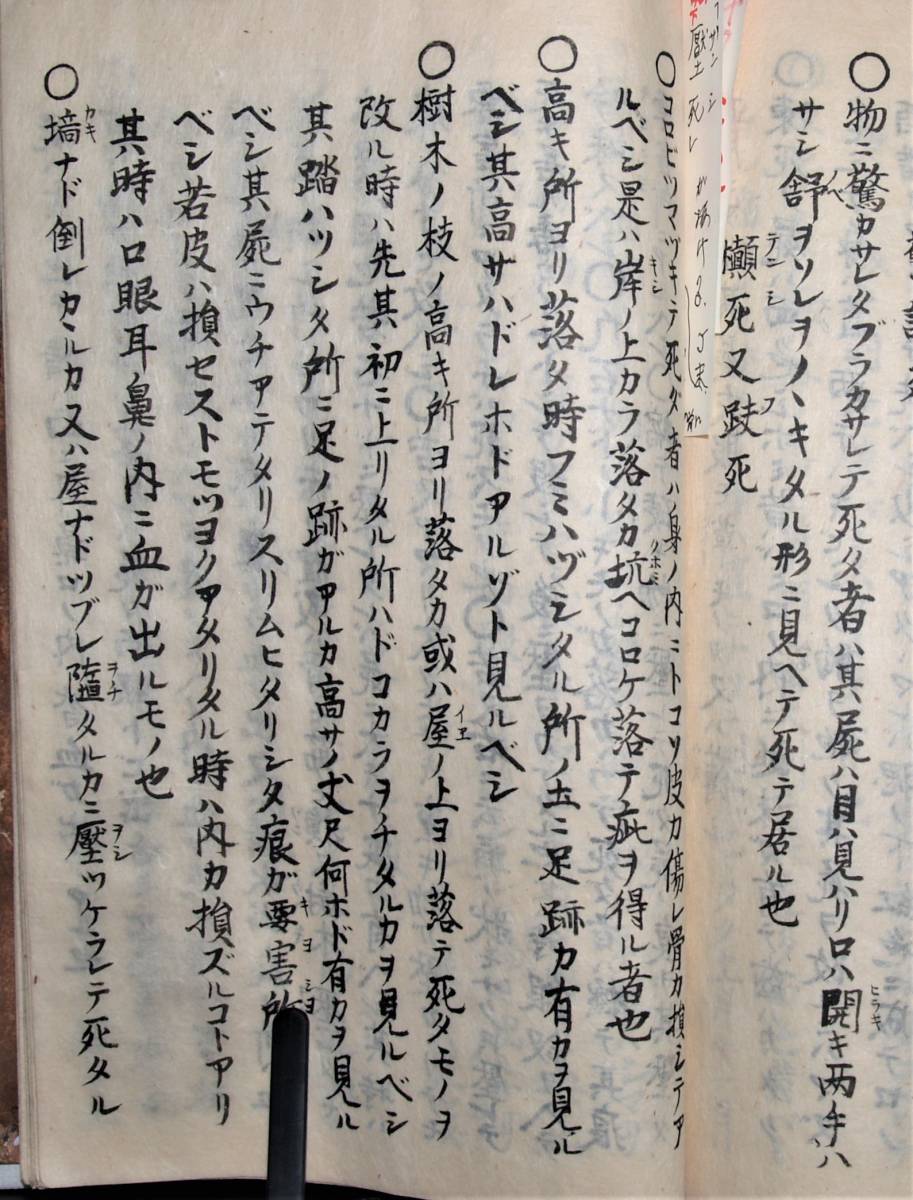 ○物ニ驚カサレタブラカサレテ死タ者ハ其屍ハ目ハ見ハリ口ハ開キ両手ハ
ヒラキ
サシ舒ヲソレヲノヽキタル形ニ見ヘテ死テ居ル也
ベ
顚死又跂死
テンシ
フ
○コロビツマヅキテ死タ者ハ身ノ内ニトコソ皮カ傷レ骨カ損シテア
ルベシ是ハ岸ノ上カラ落タカ坑ヘコロケ落テ疵ヲ得ル者也
キシ
クホミ
○高キ所ヨリ落タ時フミハヅシタル所ノ土ニ足跡カ有カヲ見ル
ベシ其高サハドレホドアルゾト見ルベシ
○樹木ノ枝ノ高キ所ヨリ落タカ或ハ屋ノ上ヨリ落テ死タモノヲ
イエ
改ル時ハ先其初ニ上リタル所ハドコカラヲチタルカヲ見ルベシ
其踏ハツシタ所ニ足ノ跡ガアルカ高サノ丈尺何ホド有カヲ見ル
ベシ其屍ニウチアテタリスリムヒタリシタ痕ガ要害所
キヨ
ベシ若皮ハ損セストモツヨクアタリタル時ハ内カ損ズルコトアリ
其時ハ口眼耳鼻ノ内ニ血ガ出ルモノ也
○墻ナド倒レカヽルカ又ハ屋ナドツブレ墮タルカニ壓ツケラレテ死タル
カキ
ヲチ
ヲシ
壓死